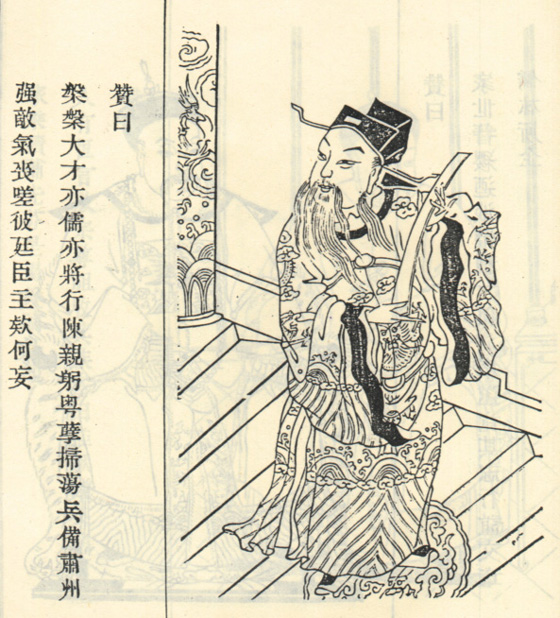 贊曰
槃槃大才亦儒亦將行陳親躬粵孽掃蕩兵備肅州
强敵氣喪嗟彼廷臣主欵何妄